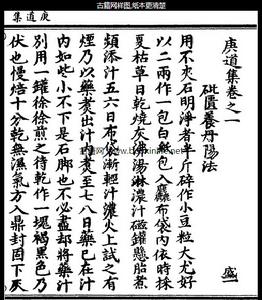 古籍网样图,纸本更清楚
庚道集
庚道集卷之一
砒匱養丹陽法
用不夾石明淨者半斤碎作小豆粒大尤好
以二兩作一包白紙包入麤布袋內依時採
夏枯草日乾燒灰沸湯淋濃汁磁罐懸胎煮
頻添汁五六日布袋漸輕汁濃火上試之有
煙乃以藥煑出汁煑至七八日藥已在汁
內如些小不下是石脚也不必盡却將藥汁
別用一罐徐徐煎之待乾作一塊褐黑色乃
伏也慢焙十分乾無濕氣方入鼎封固下灰